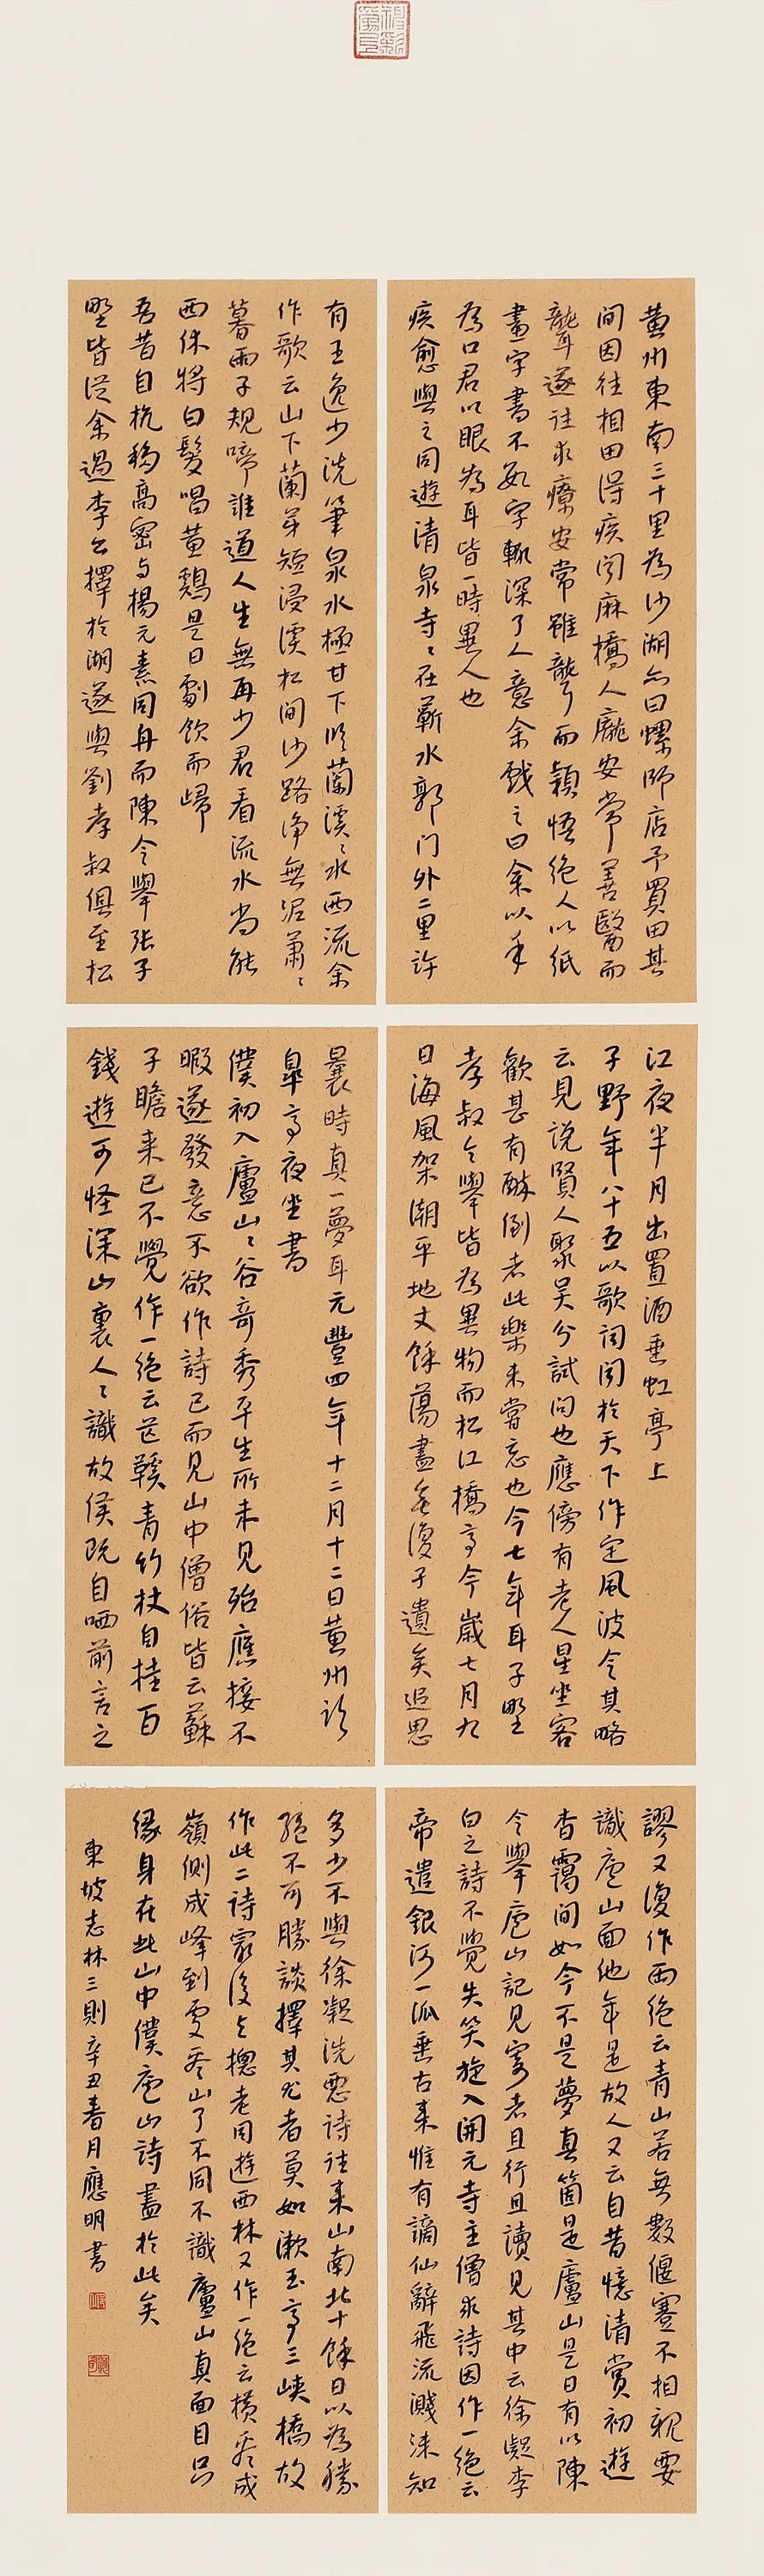 黄州東南三十里為沙湖亦曰螺師店予買田其
間因往相田得疾聞麻橋人龐安常善醫而
聾遂往求療安常雖聾而穎悟絕人以紙
畫字書不數字輒深了人意余戲之曰余以手
為口君以眼為耳皆一時異人也
疾愈與之同遊清泉寺〻在蘄水郭门外二里許
有王逸少洗筆泉水極甘下臨蘭溪〻水西流余
作歌云山下蘭芽短浸溪松間沙路净無泥蕭〻
暮雨子規啼誰道人生無再少君看流水尚能
西休將白髮唱黄鷄是日劇飲而歸
吾昔自杭移高密与楊元素同舟而陳令舉張子
野皆從余過李公擇於湖遂與劉孝叔俱至松
江夜半月出置酒垂虹亭上
子野年八十五以歌词聞於天下作定風波令其略
云見說賢人聚吴分試问也應傍有老人星坐客
歡甚有醉倒者此樂未嘗忘也今七年耳子野
孝叔令舉皆為異物而松江橋亭今歲七月九
日海風架潮平地丈餘蕩盡無復孑遺矣追思
曩時真一夢耳元豐四年十二月十二日黄州臨
皐亭夜坐書
僕初入廬山〻谷奇秀平生所未見殆應接不
暇遂發意不欲作詩已而見山中僧俗皆云蘇
子瞻来已不覺作一絕云芒鞵青竹杖自挂百
錢遊可怪深山裏人〻識故侯既自哂前言之
謬又復作两绝云青山若無數偃蹇不相親要
識庐山面他年是故人又云自昔憶清賞初遊
杳靄間如今不是夢真箇是廬山是日有以陳
令舉庐山記見寄者且行且讀見其中云徐凝李
白之詩不覺失笑旋入開元寺主僧求詩因作一絕云
帝遣銀河一派垂古来惟有謫仙辭飛流濺沫知
多少不與徐凝洗惡詩往来山南北十餘日以為勝
絕不可勝談擇其尤者莫如漱玉亭三峽橋故
作此二詩最後与摠老同遊西林又作一绝云横看成
嶺側成峰到處看山了不同不識廬山真面目只
緣身在此山中僕庐山詩盡於此矣
東坡志林三則辛丑春月應明書